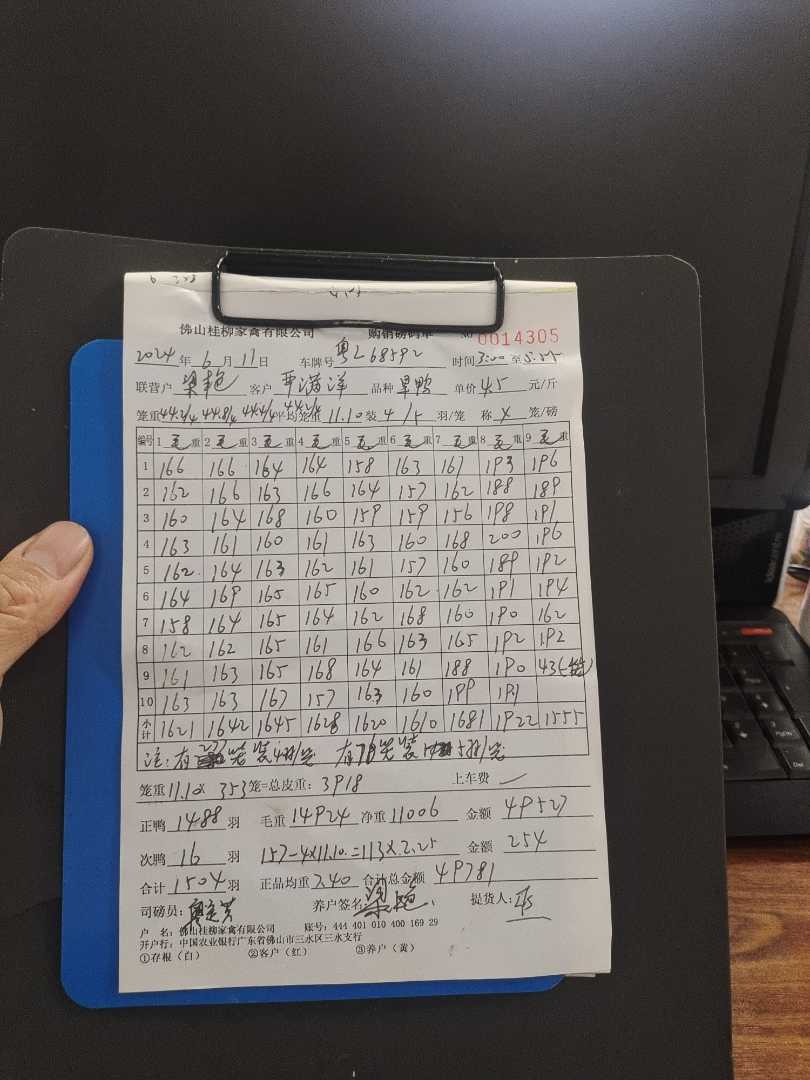 佛山桂柳家禽有限公司 购销磅码单 No 0014305
2024年6月11日 车牌号 粤L68592 时间3:00至5:55
联营户 梁艳 客户 品种 旱鸭 单价 4.5 元/斤
笼重44.2/4 44.8/4 44.4/4 平均笼重 11.10 装 4/5 羽/笼 称 4 笼/磅
编号 1 毛重 2 毛重 3 毛重 4 毛重 5 毛重 6 毛重 7 毛重 8 毛重 9 毛重
1 166 166 164 164 158 163 161 193 196
2 162 166 163 166 164 157 162 188 189
3 160 164 168 160 159 159 156 198 191
4 163 161 160 161 163 160 168 200 196
5 162 164 163 162 161 157 160 189 192
6 164 169 165 165 160 162 162 191 194
7 158 164 165 164 162 168 160 190 162
8 162 162 165 161 166 163 165 192 192
9 161 163 165 168 164 161 188 190 43(1笼)
10 163 163 167 157 163 160 199 191
小计 1621 1642 1645 1628 1620 1610 1681 1922 1555
注:有277笼装4羽/笼 有76笼装5羽/笼
笼重11.10× 353笼=总皮重:3918 上车费
正鸭 1488 羽 毛重 14924 净重 11006 金额 49527
次鸭 16 羽 157-4×11.10.=113×2.25 金额 254
合计 1504 羽 正品均重 7.40 合计总金额 49781
司磅员: 养户签名 梁艳 提货人:
户 名:佛山桂柳家禽有限公司 账号:444 401 010 400 169 29
开户行:中国农业银行广东省佛山市三水区三水支行
①存根(白) ②客户(红) ③养户(黄)